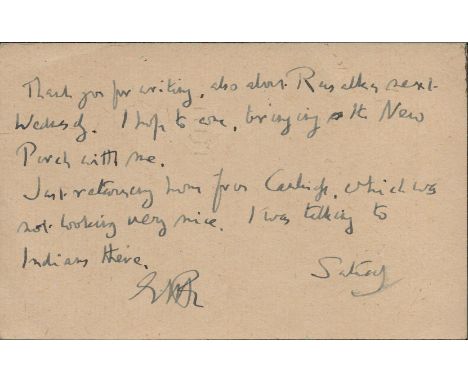 Thank you for writing, also about Rusalka next
Wednesday. I hope to come, bringing the New
Porch with me.
Just returning home from Cambridge, which was
not looking very nice. I was talking to
Indians there.
Saturday